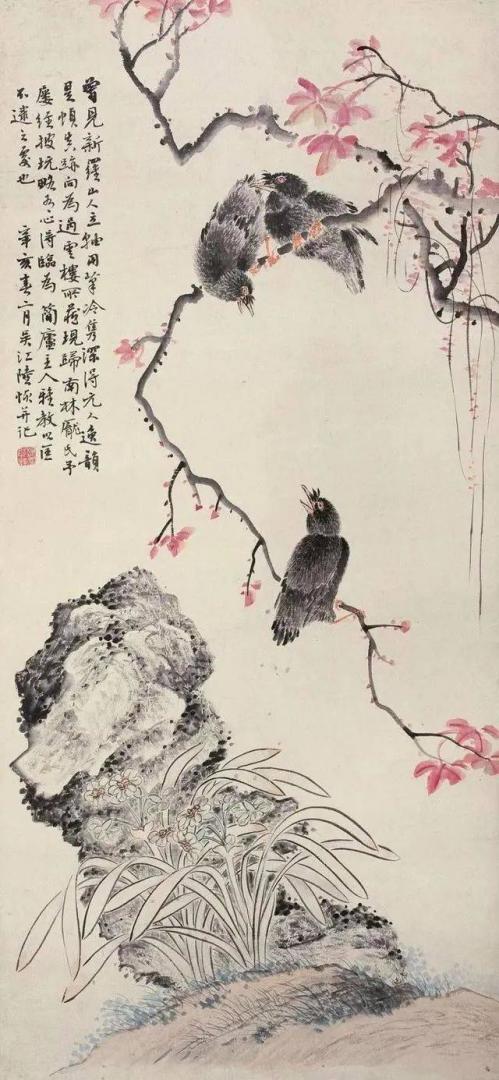 曾見新羅山人立軸用筆冷雋深得元人逸韻
是幀真跡向為過雲樓所藏現歸南林龐氏予
屢經披玩略有心得臨為簡廬主人雅教以匡
不逮之處也 辛亥春二月吳江陸恢并記